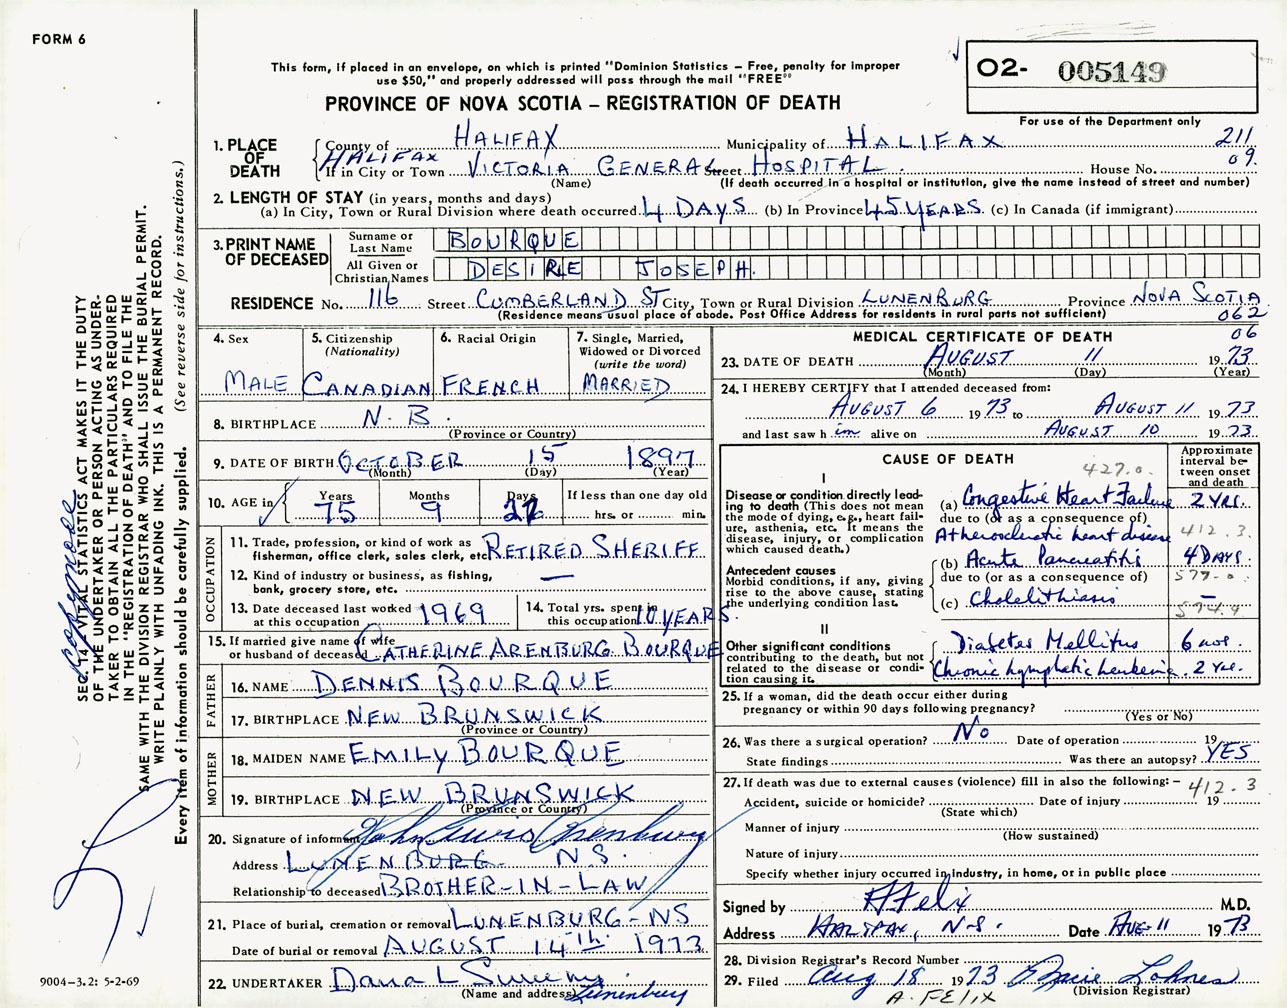 FORM 6
This form, if placed in an envelope, on which is printed "Dominion Statistics – Free, penalty for improper
use $50," and properly addressed will pass through the mail "FREE"
O2- 005149
For use of the Department only
PROVINCE OF NOVA SCOTIA – REGISTRATION OF DEATH
1. PLACE OF DEATH
County of HALIFAX Municipality of HALIFAX 211
HALIFAX 09
If in City or Town VICTORIA GENERAL Street HOSPITAL House No.
(Name) (If death occurred in a hospital or institution, give the name instead of street and number)
2. LENGTH OF STAY (in years, months and days)
(a) In City, Town or Rural Division where death occurred 4 DAYS (b) In Province 45 YEARS (c) In Canada (if immigrant)
3. PRINT NAME OF DECEASED
Surname or Last Name BOURQUE
All Given or Christian Names DESIRE JOSEPH.
RESIDENCE No. 116 Street CUMBERLAND ST City, Town or Rural Division LUNENBURG Province NOVA SCOTIA
(Residence means usual place of abode. Post Office Address for residents in rural parts not sufficient) 062
06
4. Sex MALE
5. Citizenship (Nationality) CANADIAN
6. Racial Origin FRENCH
7. Single, Married, Widowed or Divorced (write the word) MARRIED
8. BIRTHPLACE N.B.
(Province or Country)
9. DATE OF BIRTH OCTOBER 15 1897
(Month) (Day) (Year)
10. AGE in Years 75 Months 9 Days If less than one day old hrs. or min.
OCCUPATION
11. Trade, profession, or kind of work as fisherman, office clerk, sales clerk, etc. RETIRED SHERIFF
12. Kind of industry or business, as fishing, bank, grocery store, etc. —
13. Date deceased last worked at this occupation 1969
14. Total yrs. spent in this occupation 10 YEARS.
15. If married give name of wife or husband of deceased CATHERINE ARENBURG BOURQUE
FATHER
16. NAME DENNIS BOURQUE
17. BIRTHPLACE NEW BRUNSWICK
(Province or Country)
MOTHER
18. MAIDEN NAME EMILY BOURQUE
19. BIRTHPLACE NEW BRUNSWICK
(Province or Country)
20. Signature of informant John Lewis Arenburg
Address LUNENBURG N.S.
Relationship to deceased BROTHER-IN-LAW
21. Place of burial, cremation or removal LUNENBURG-NS
Date of burial or removal AUGUST 14th 1973
22. UNDERTAKER Dana L Sweeny
(Name and address) Lunenburg
MEDICAL CERTIFICATE OF DEATH
23. DATE OF DEATH AUGUST 11 1973
(Month) (Day) (Year)
24. I HEREBY CERTIFY that I attended deceased from:
AUGUST 6 1973 to AUGUST 11 1973
and last saw him alive on AUGUST 10 1973
CAUSE OF DEATH 427.0.
Approximate interval between onset and death
I
Disease or condition directly leading to death (This does not mean the mode of dying, e.g., heart failure, asthenia, etc. It means the disease, injury, or complication which caused death.)
(a) Congestive Heart Failure 2 YRS.
due to (or as a consequence of)
Atherosclerotic heart disease 412.3
Antecedent causes
Morbid conditions, if any, giving rise to the above cause, stating the underlying condition last.
(b) Acute Pancreatitis 4 DAYS
due to (or as a consequence of) 577.0
(c) Cholelithiasis —
574.9
II
Other significant conditions contributing to the death, but not related to the disease or condition causing it.
Diabetes Mellitus 6 mos.
Chronic lymphatic leukemia 2 Yrs.
25. If a woman, did the death occur either during pregnancy or within 90 days following pregnancy?
(Yes or No)
26. Was there a surgical operation? No Date of operation 19
State findings Was there an autopsy? YES
27. If death was due to external causes (violence) fill in also the following:– 412.3
Accident, suicide or homicide? Date of injury 19
(State which)
Manner of injury
(How sustained)
Nature of injury
Specify whether injury occurred in industry, in home, or in public place
Signed by A Felix M.D.
Address HALIFAX, N-S. Date AUG-11 1973
28. Division Registrar's Record Number
29. Filed Aug 18 1973 Lohnes
(Division Registrar)
A. FELIX
SEC. 14, VITAL STATISTICS ACT MAKES IT THE DUTY
OF THE UNDERTAKER OR PERSON ACTING AS UNDER-
TAKER TO OBTAIN ALL THE PARTICULARS REQUIRED
IN THE "REGISTRATION OF DEATH" AND TO FILE THE
SAME WITH THE DIVISION REGISTRAR WHO SHALL ISSUE THE BURIAL PERMIT.
WRITE PLAINLY WITH UNFADING INK. THIS IS A PERMANENT RECORD.
Every item of information should be carefully supplied. (See reverse side for instructions.)
9004-3.2: 5-2-69